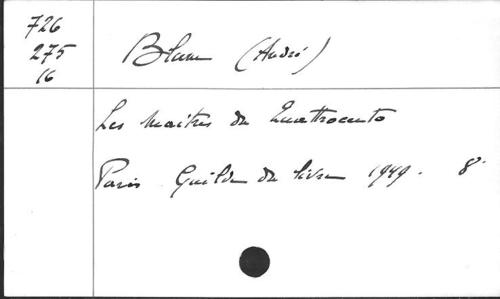 726
275
16
Blum (André)
Les maitres du Quattrocento
Paris Guilde du livre 1949. 8°